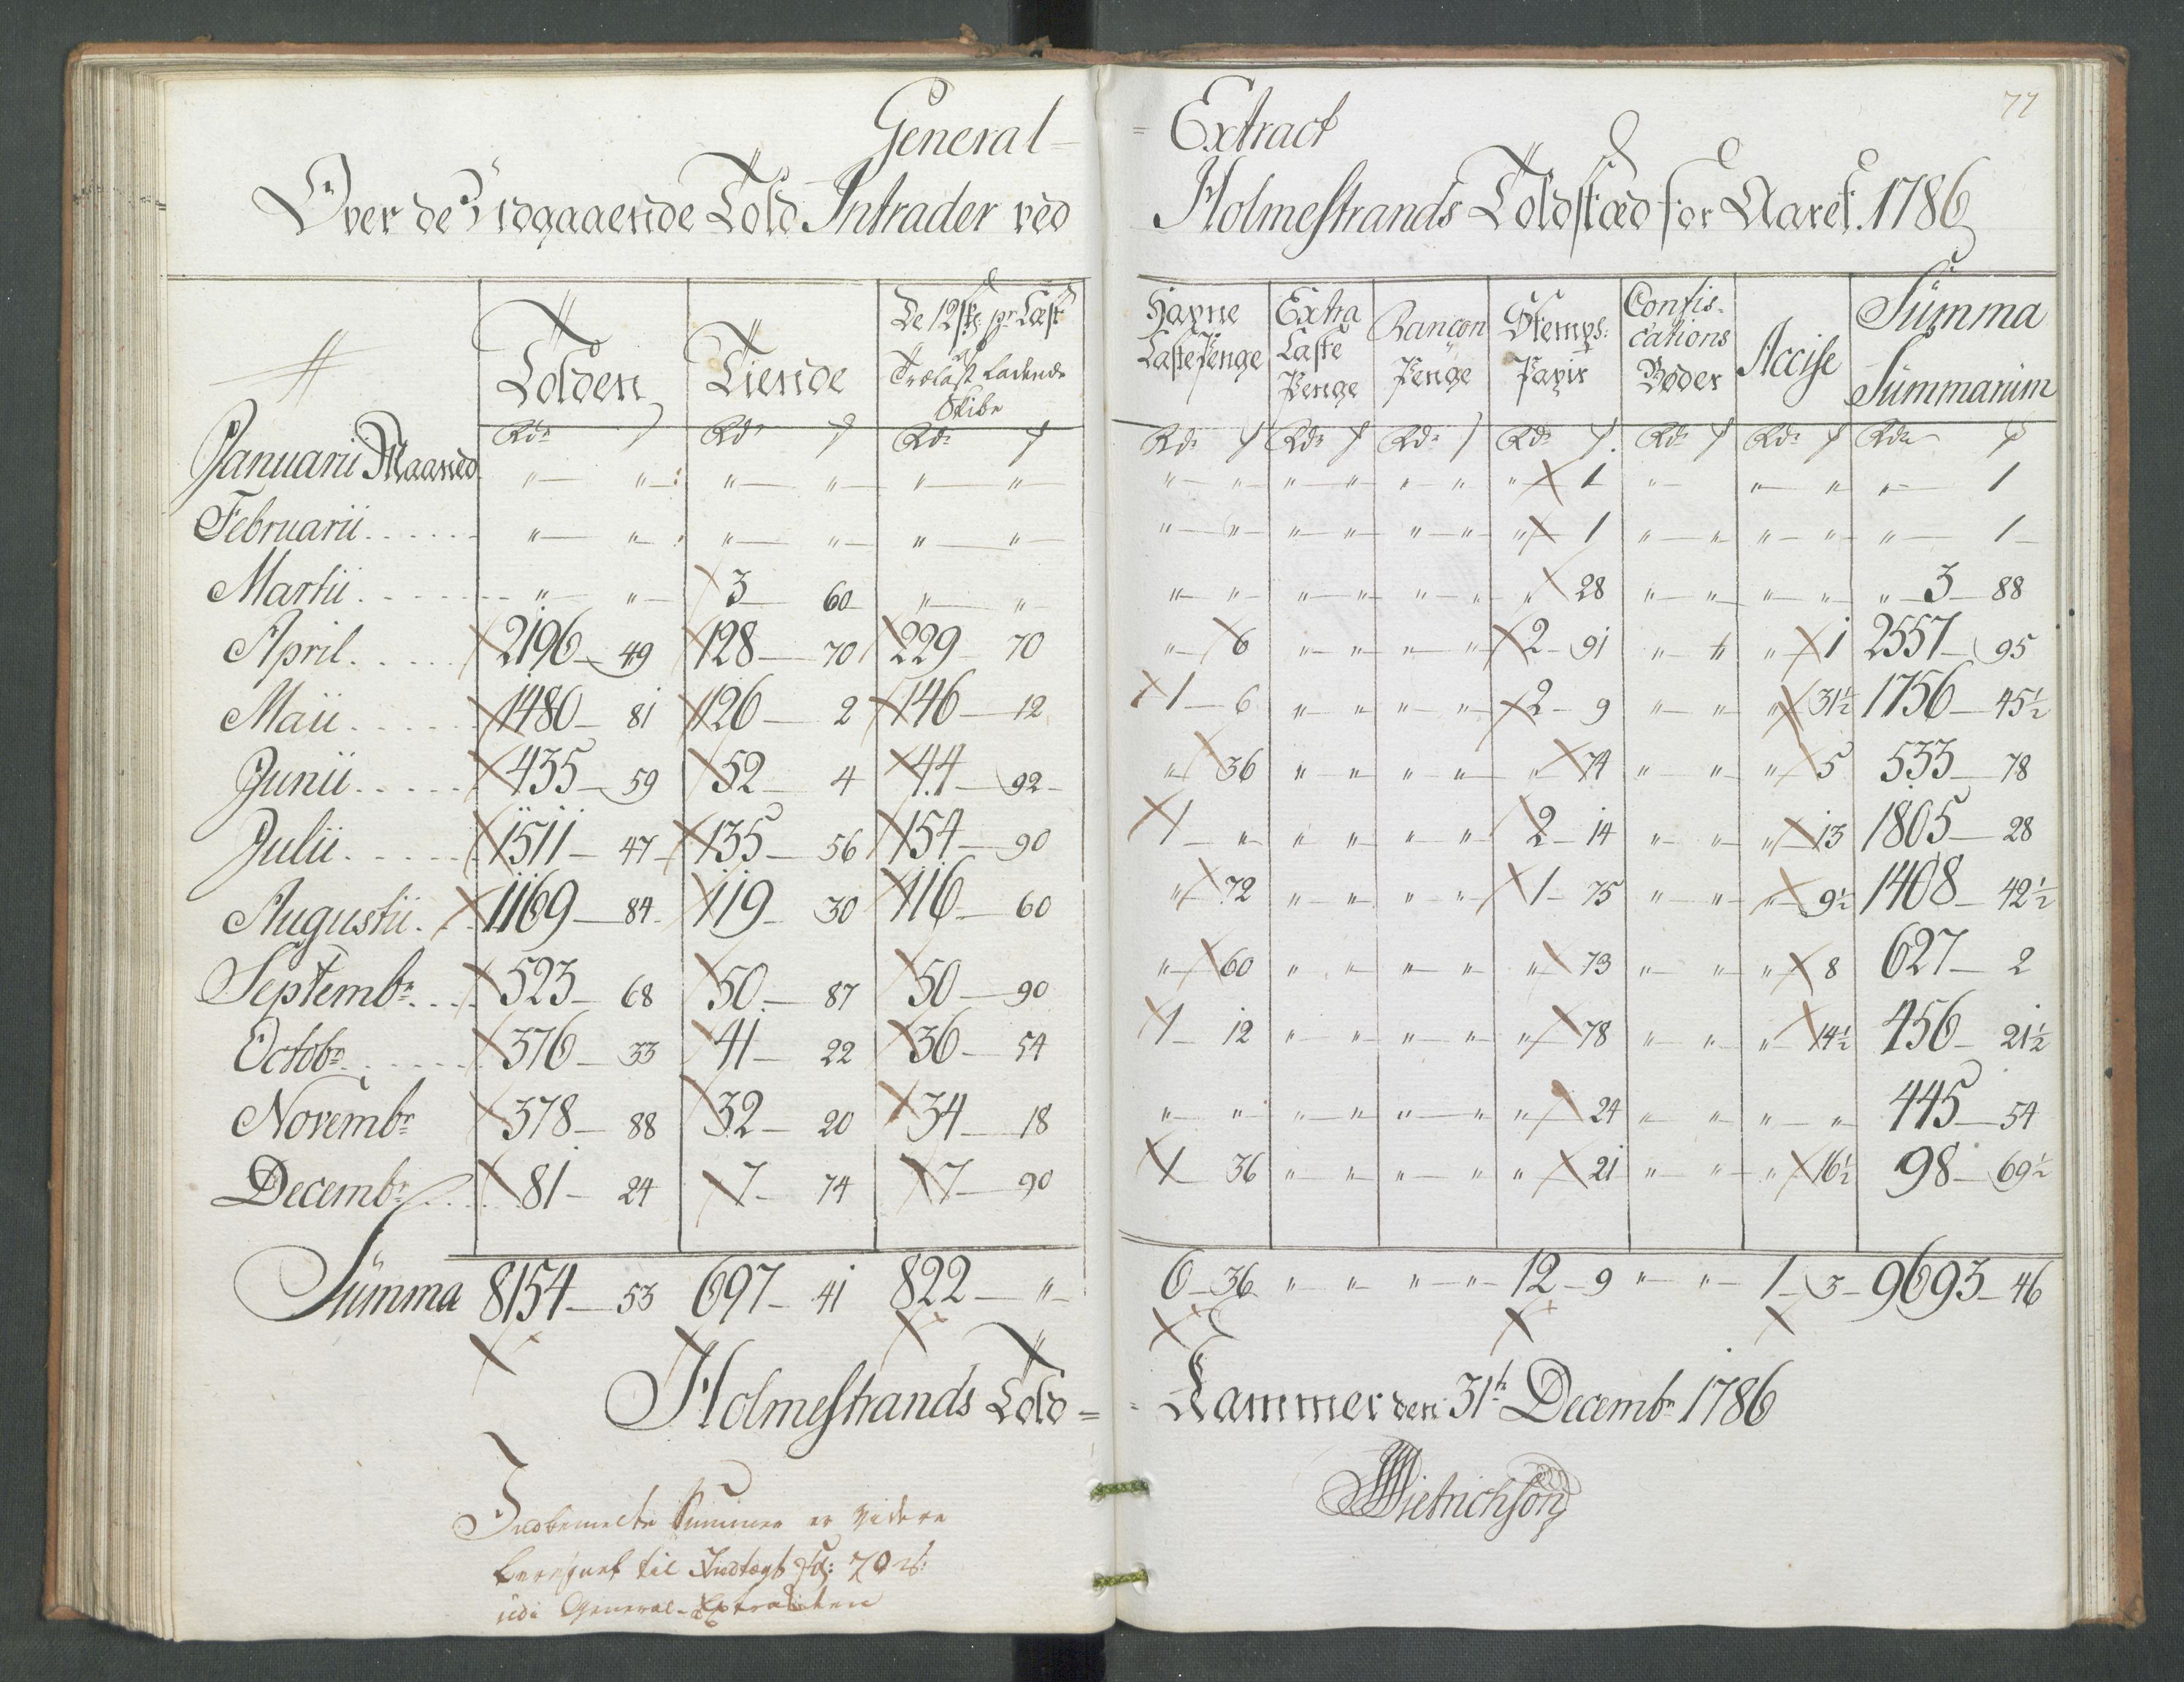 77
General- = Extract
Over de Udgaaende Told Intrader ved Holmestrands Toldstæd for Aaret. 1786
Tolden | Tiende | De 12 sk: pr Læst af Træläst Ladende Skibe | Havne Laste Penge | Extra Laste Penge | Rançon Penge | Stempl: Papir | Confis-cations Bøder | Accise | Summa Summarum
Rdr ß | Rdr ß | Rdr ß | Rdr ß | Rdr ß | Rdr ß | Rdr ß | Rdr ß | Rdr ß | Rdr ß
Januarii Maaned | " — " | " — " | " — " | " — " | " — " | " — " | " 1 | " — | " — " | " — 1
Februarii | " — " | " — " | " — " | " — " | " — " | " — " | " 1 | " — " | " — " | " — 1
Martii | " — " | 3 — 60 | " — " | " — " | " — " | " — " | " 28 | " — " | " — " | " 3 — 88
April | 2196 — 49 | 128 — 70 | 229 — 70 | " 6 | " — " | " — " | 2 — 91 | " — " | " 1 | 2557 — 95
Maii | 1480 — 81 | 126 — 2 | 146 — 12 | 1 — 6 | " — " | " — " | 2 — 9 | " — " | " 31½ | 1756 — 45½
Junii | 435 — 59 | 52 — 4 | 44 — 92 | " 36 | " — " | " — " | " 74 | " — " | " 5 | 533 — 78
Julii | 1511 — 47 | 135 — 56 | 154 — 90 | 1 — " | " — " | " — " | 2 — 14 | " — " | " 13 | 1805 — 28
Augustii | 1169 — 84 | 119 — 30 | 116 — 60 | " 72 | " — " | " — " | 1 — 75 | " — " | " 9½ | 1408 — 42½
Septembr | 523 — 68 | 50 — 87 | 50 — 90 | " 60 | " — " | " — " | " 73 | " — " | " 8 | 627 — 2
Octobr | 376 — 33 | 41 — 22 | 36 — 54 | 1 — 12 | " — " | " — " | " 78 | " — " | " 14½ | 456 — 21½
Novembr | 378 — 88 | 32 — 20 | 34 — 18 | " — " | " — " | " — " | " 24 | " — " | " — " | 445 — 54
Decembr | 81 — 24 | 7 — 74 | 7 — 90 | 1 — 36 | " — " | " — " | " 21 | " — " | " 16½ | 98 — 69½
Summa | 8154 — 53 | 697 — 41 | 822 — " | 6 — 36 | " — " | " — " | 12 — 9 | " — " | 1 — 3 | 9693 — 46
Holmestrands Told = Kammer den 31te Decembr 1786
Dietrichson
Indbemelte Summer er videre
beregnet til Indtægt fol: 70
udi General-Extracten